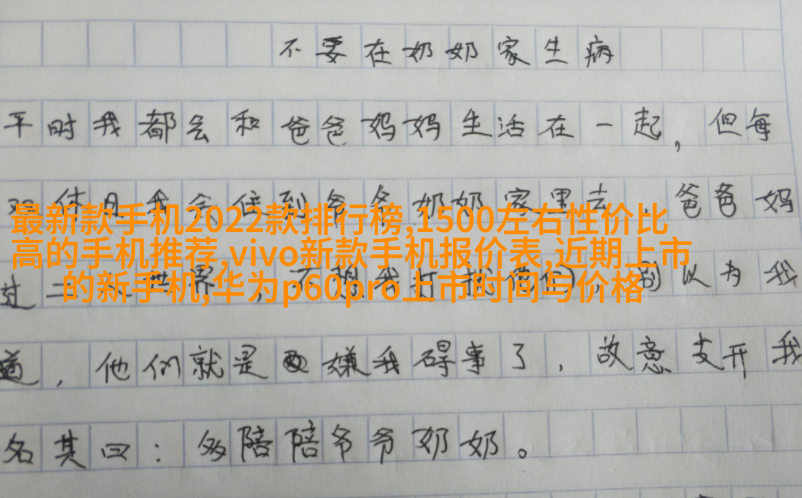 不要在奶奶家生病
平时我都会和爸爸妈妈生活在一起，但每
休日我会住到爷爷奶奶家里去。爸爸妈
最新款手机2022款排行榜,1500左右性价比
高的手机推荐,vivo新款手机报价表,近期上市
的新手机,华为p60pro上市时间与价格
过二人世界，不想我打扰他们，别以为我
道，他们就是嫌我碍事了，故意支开我
名其曰：多陪陪爷爷奶奶。